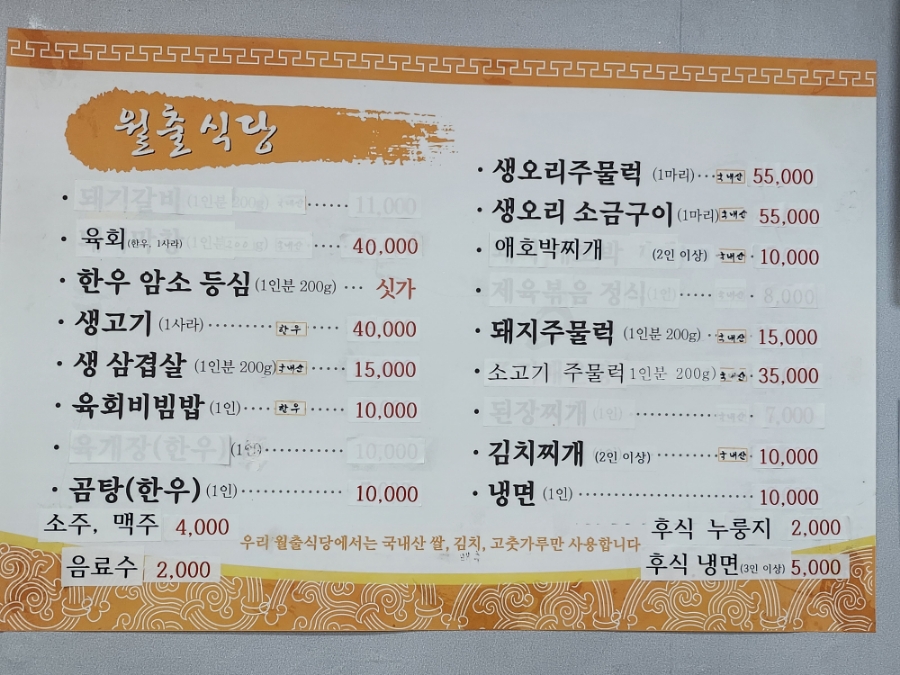 월출식당
· 돼기갈비 (1인분 200g) ······ 11,000
· 육회 (한우, 1사라) ···· 40,000
· 한우 암소 등심 (1인분 200g) ··· 싯가
· 생고기 (1사라) ········ 한우 ···· 40,000
· 생 삼겹살 (1인분 200g) 국내산 ····· 15,000
· 육회비빔밥 (1인) ···· 한우 ····· 10,000
· 육개장(한우) (1인) ············ 10,000
· 곰탕(한우) (1인) ··············· 10,000
소주, 맥주 4,000
음료수 2,000
· 생오리주물럭 (1마리) ··· 국내산 55,000
· 생오리 소금구이 (1마리) 국내산 55,000
· 애호박찌개 (2인 이상) 국내산 · 10,000
· 제육볶음 정식 (1인) ···· 8,000
· 돼지주물럭 (1인분 200g) ·· 국내산 · 15,000
· 소고기 주물럭 1인분 200g) 국내산 · 35,000
· 된장찌개 (1인) ············ 국내산 · 7,000
· 김치찌개 (2인 이상) ········ 국내산 · 10,000
· 냉면 (1인) ······················ 10,000
후식 누룽지 2,000
후식 냉면 (3인 이상) 5,000
우리 월출식당에서는 국내산 쌀, 김치, 고춧가루만 사용합니다